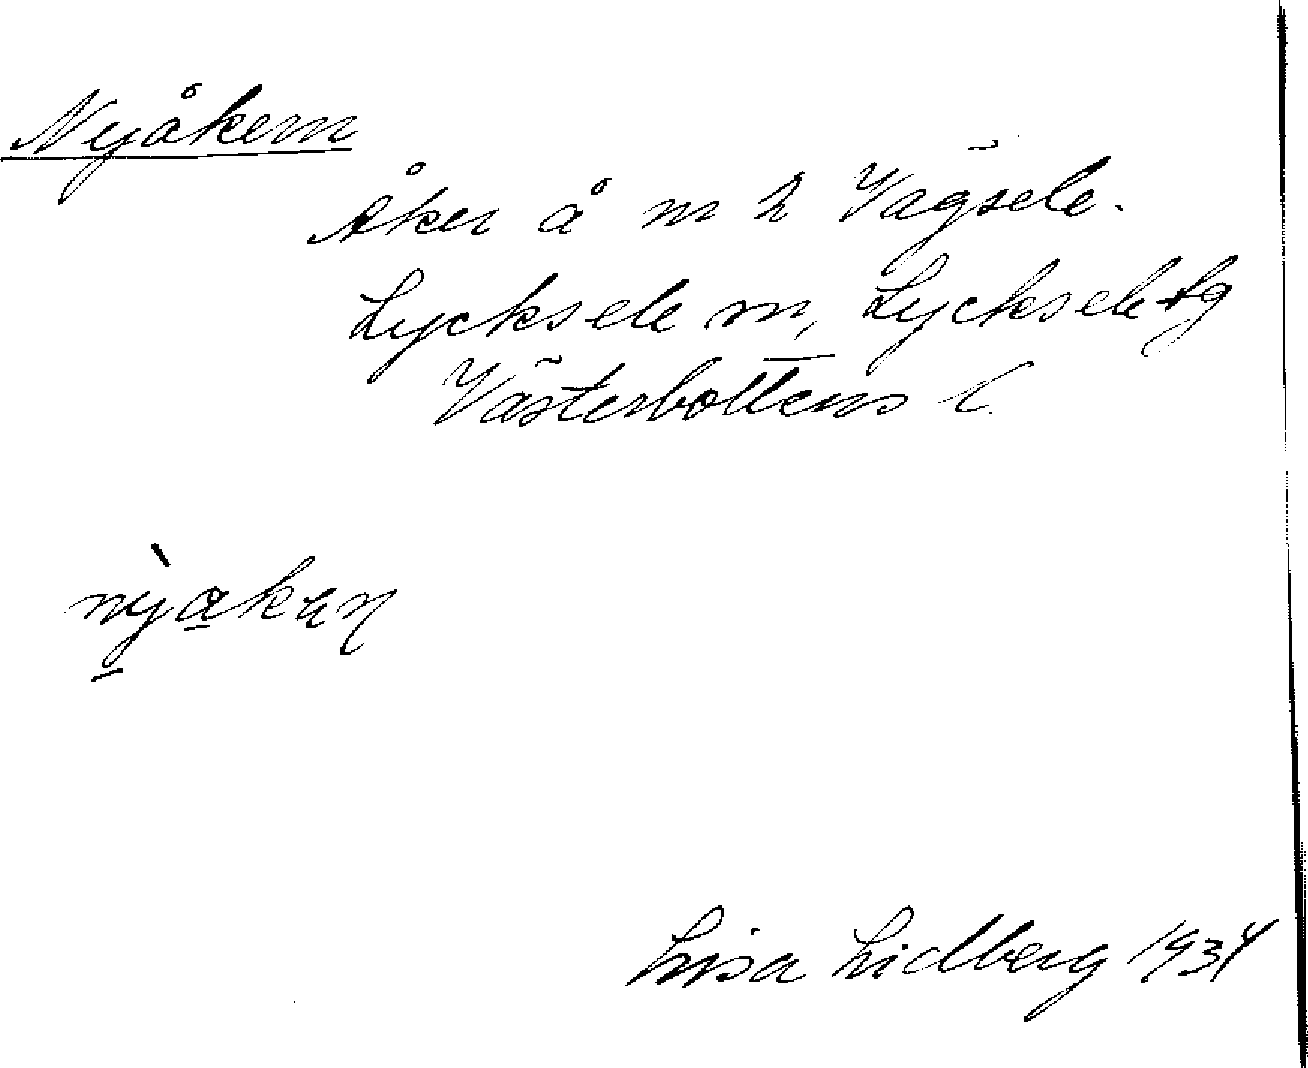 Nyåkern
Åker å nr 2 Vägsele.
Lycksele sn, Lycksele tg
Västerbottens l.
nỳ̱a̱kɐn
Lisa Lidberg 1934